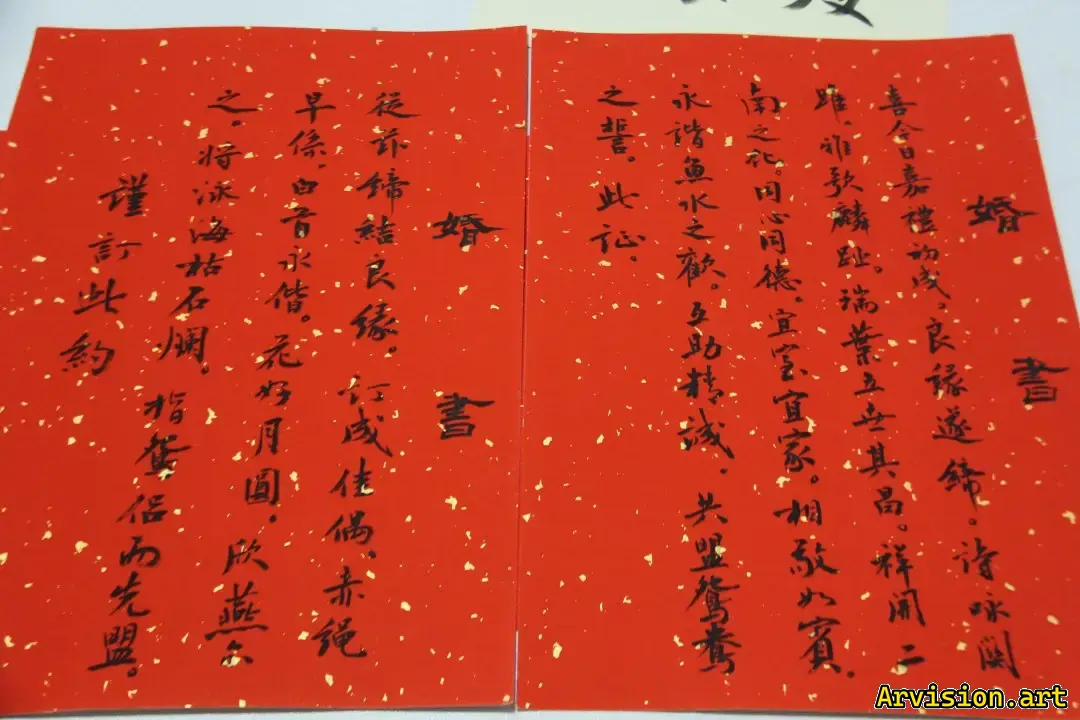 婚書
喜今日嘉禮初成,良緣遂締。詩咏關
雎,雅歌麟趾。瑞葉五世其昌。祥開二
南之化。同心同德。宜室宜家。相敬如賓。
永諧魚水之歡。互助精誠。共盟鴛鴦
之誓。此证。
婚書
從茲締結良緣。订成佳偶、赤绳
早係。白首永偕。花好月圓。欣燕尒
之。将泳海枯石爛。指鴛侣而先盟。
謹訂此約
Arvision.art